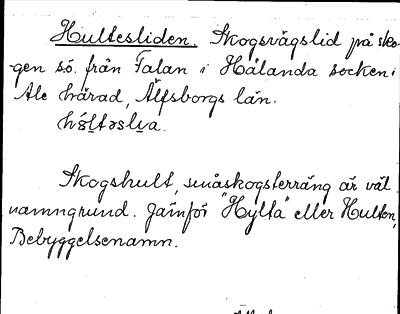 Hultesliden. Skogsvägslid på sko-
-gen sö. från Talan i Hålanda socken i
Ale härad, Älfsborgs län.
Skogshult, småskogsterräng är väl
namngrund. Jämför "Hylta" eller Hulten,
Bebyggelsenamn.